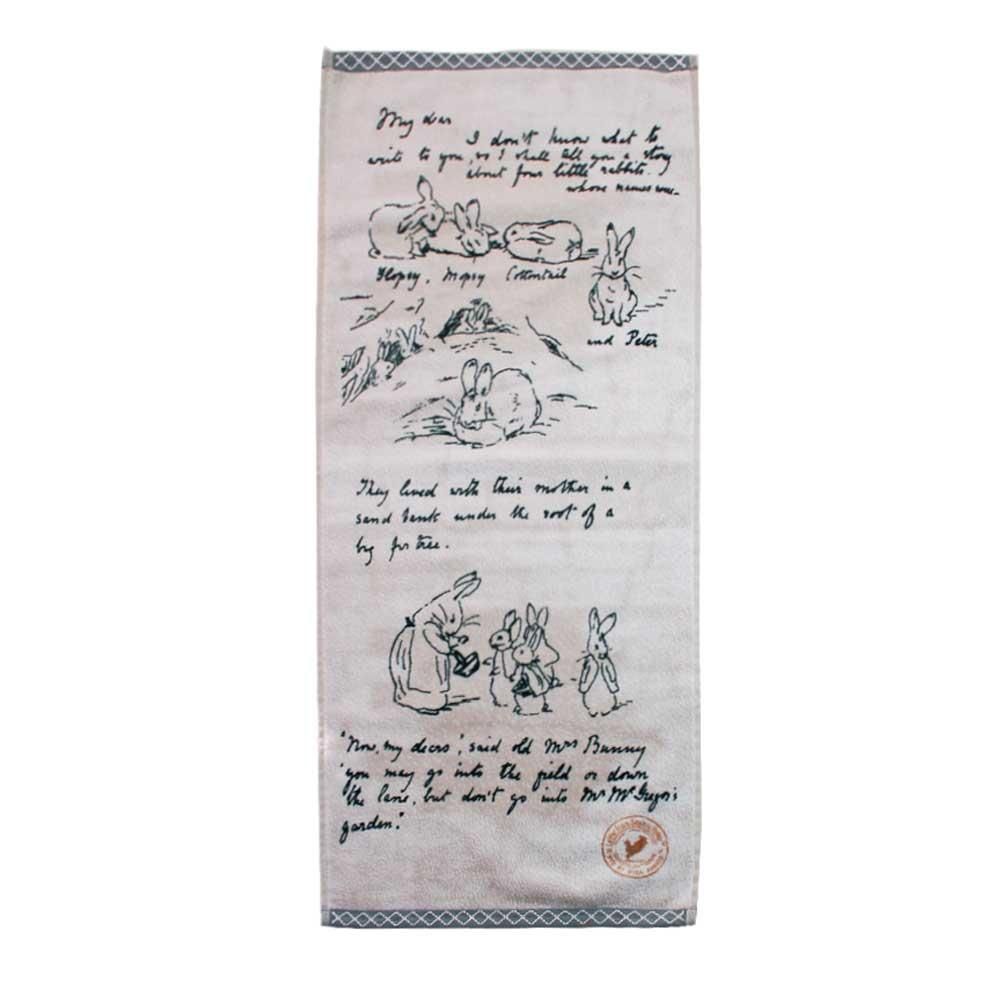 My dear
I don't know what to
write to you, so I shall tell you a story
about four little rabbits.
whose names were-
Flopsy, Mopsy Cottontail
and Peter
They lived with their mother in a
sand bank under the root of a
big fir tree.
"Now, my dears", said old Mrs Bunny
"you may go into the field or down
the lane, but don't go into Mr McGregor's
garden."